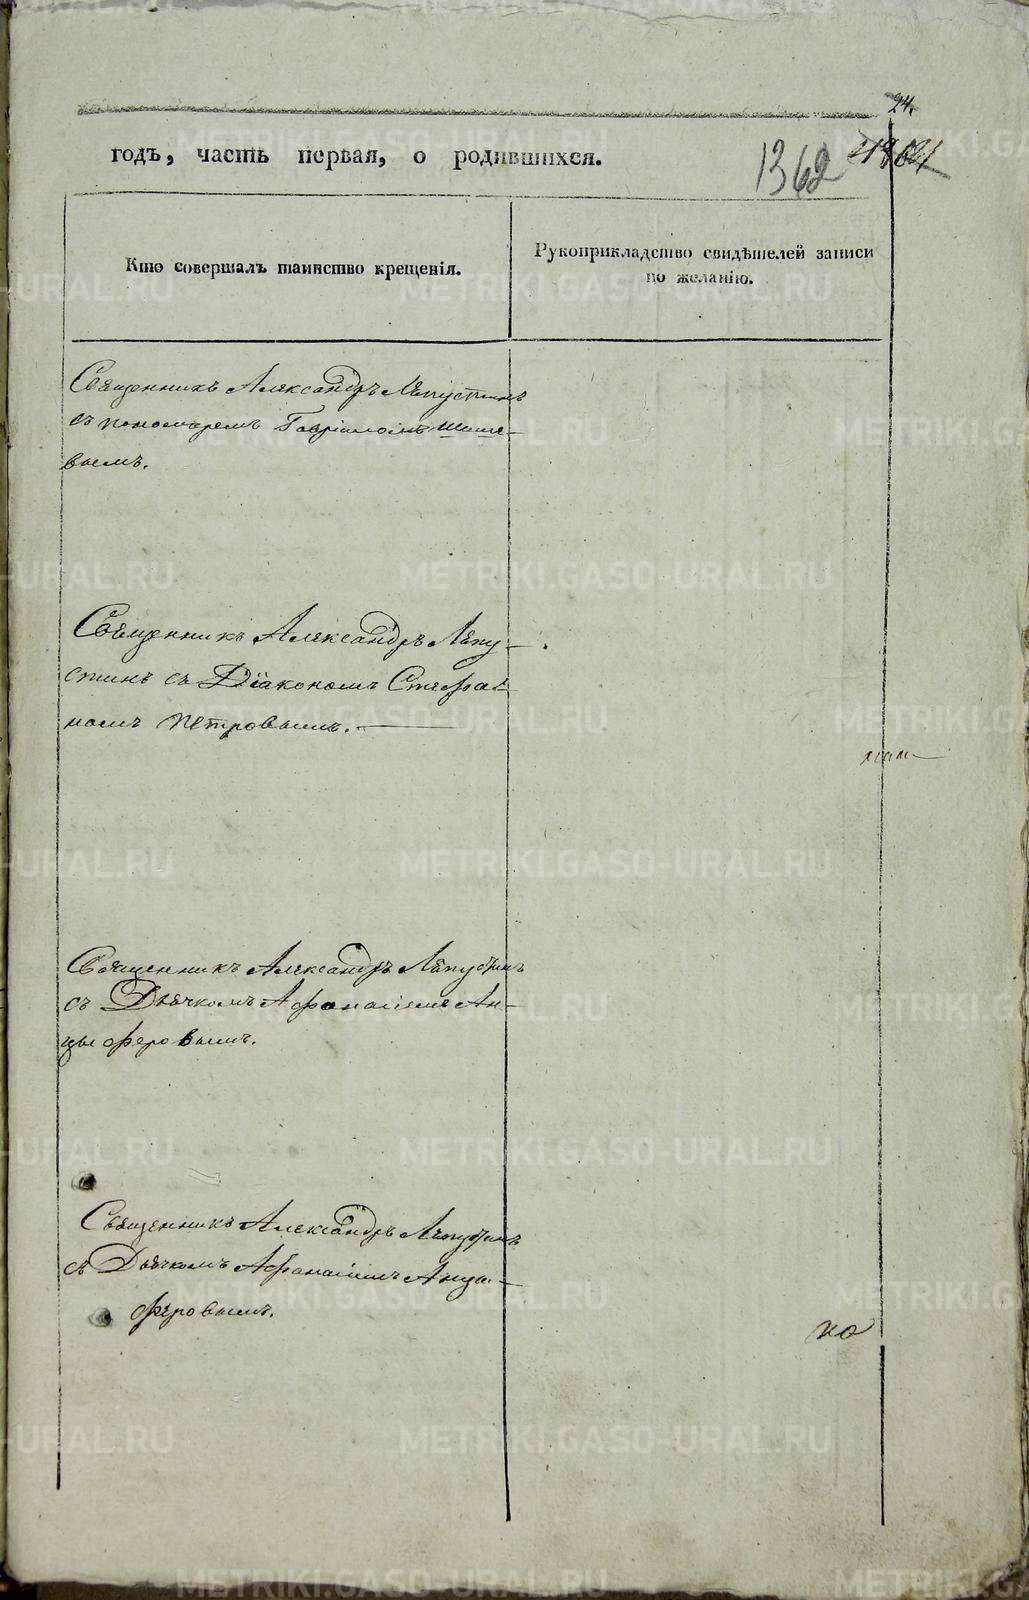 24.
годъ, часть первая, о родившихся.
1362
Кто совершалъ таинство крещенія.
Рукоприкладство свидѣтелей записи
по желанію.
Священникъ Александръ Лѣпустинъ
съ пономаремъ Гавріиломъ Шише-
вымъ.
Священникъ Александръ Лѣпу-
стинъ съ Діакономъ Стефа-
номъ Петровымъ.
Священникъ Александръ Лѣпустинъ
съ Дьячкомъ Афанасіемъ Ан-
цыферовымъ.
Священникъ Александръ Лѣпустинъ
съ Дьячкомъ Афанасіемъ Анцы-
феровымъ.
ко
METRIKI.GASO-URAL.RU